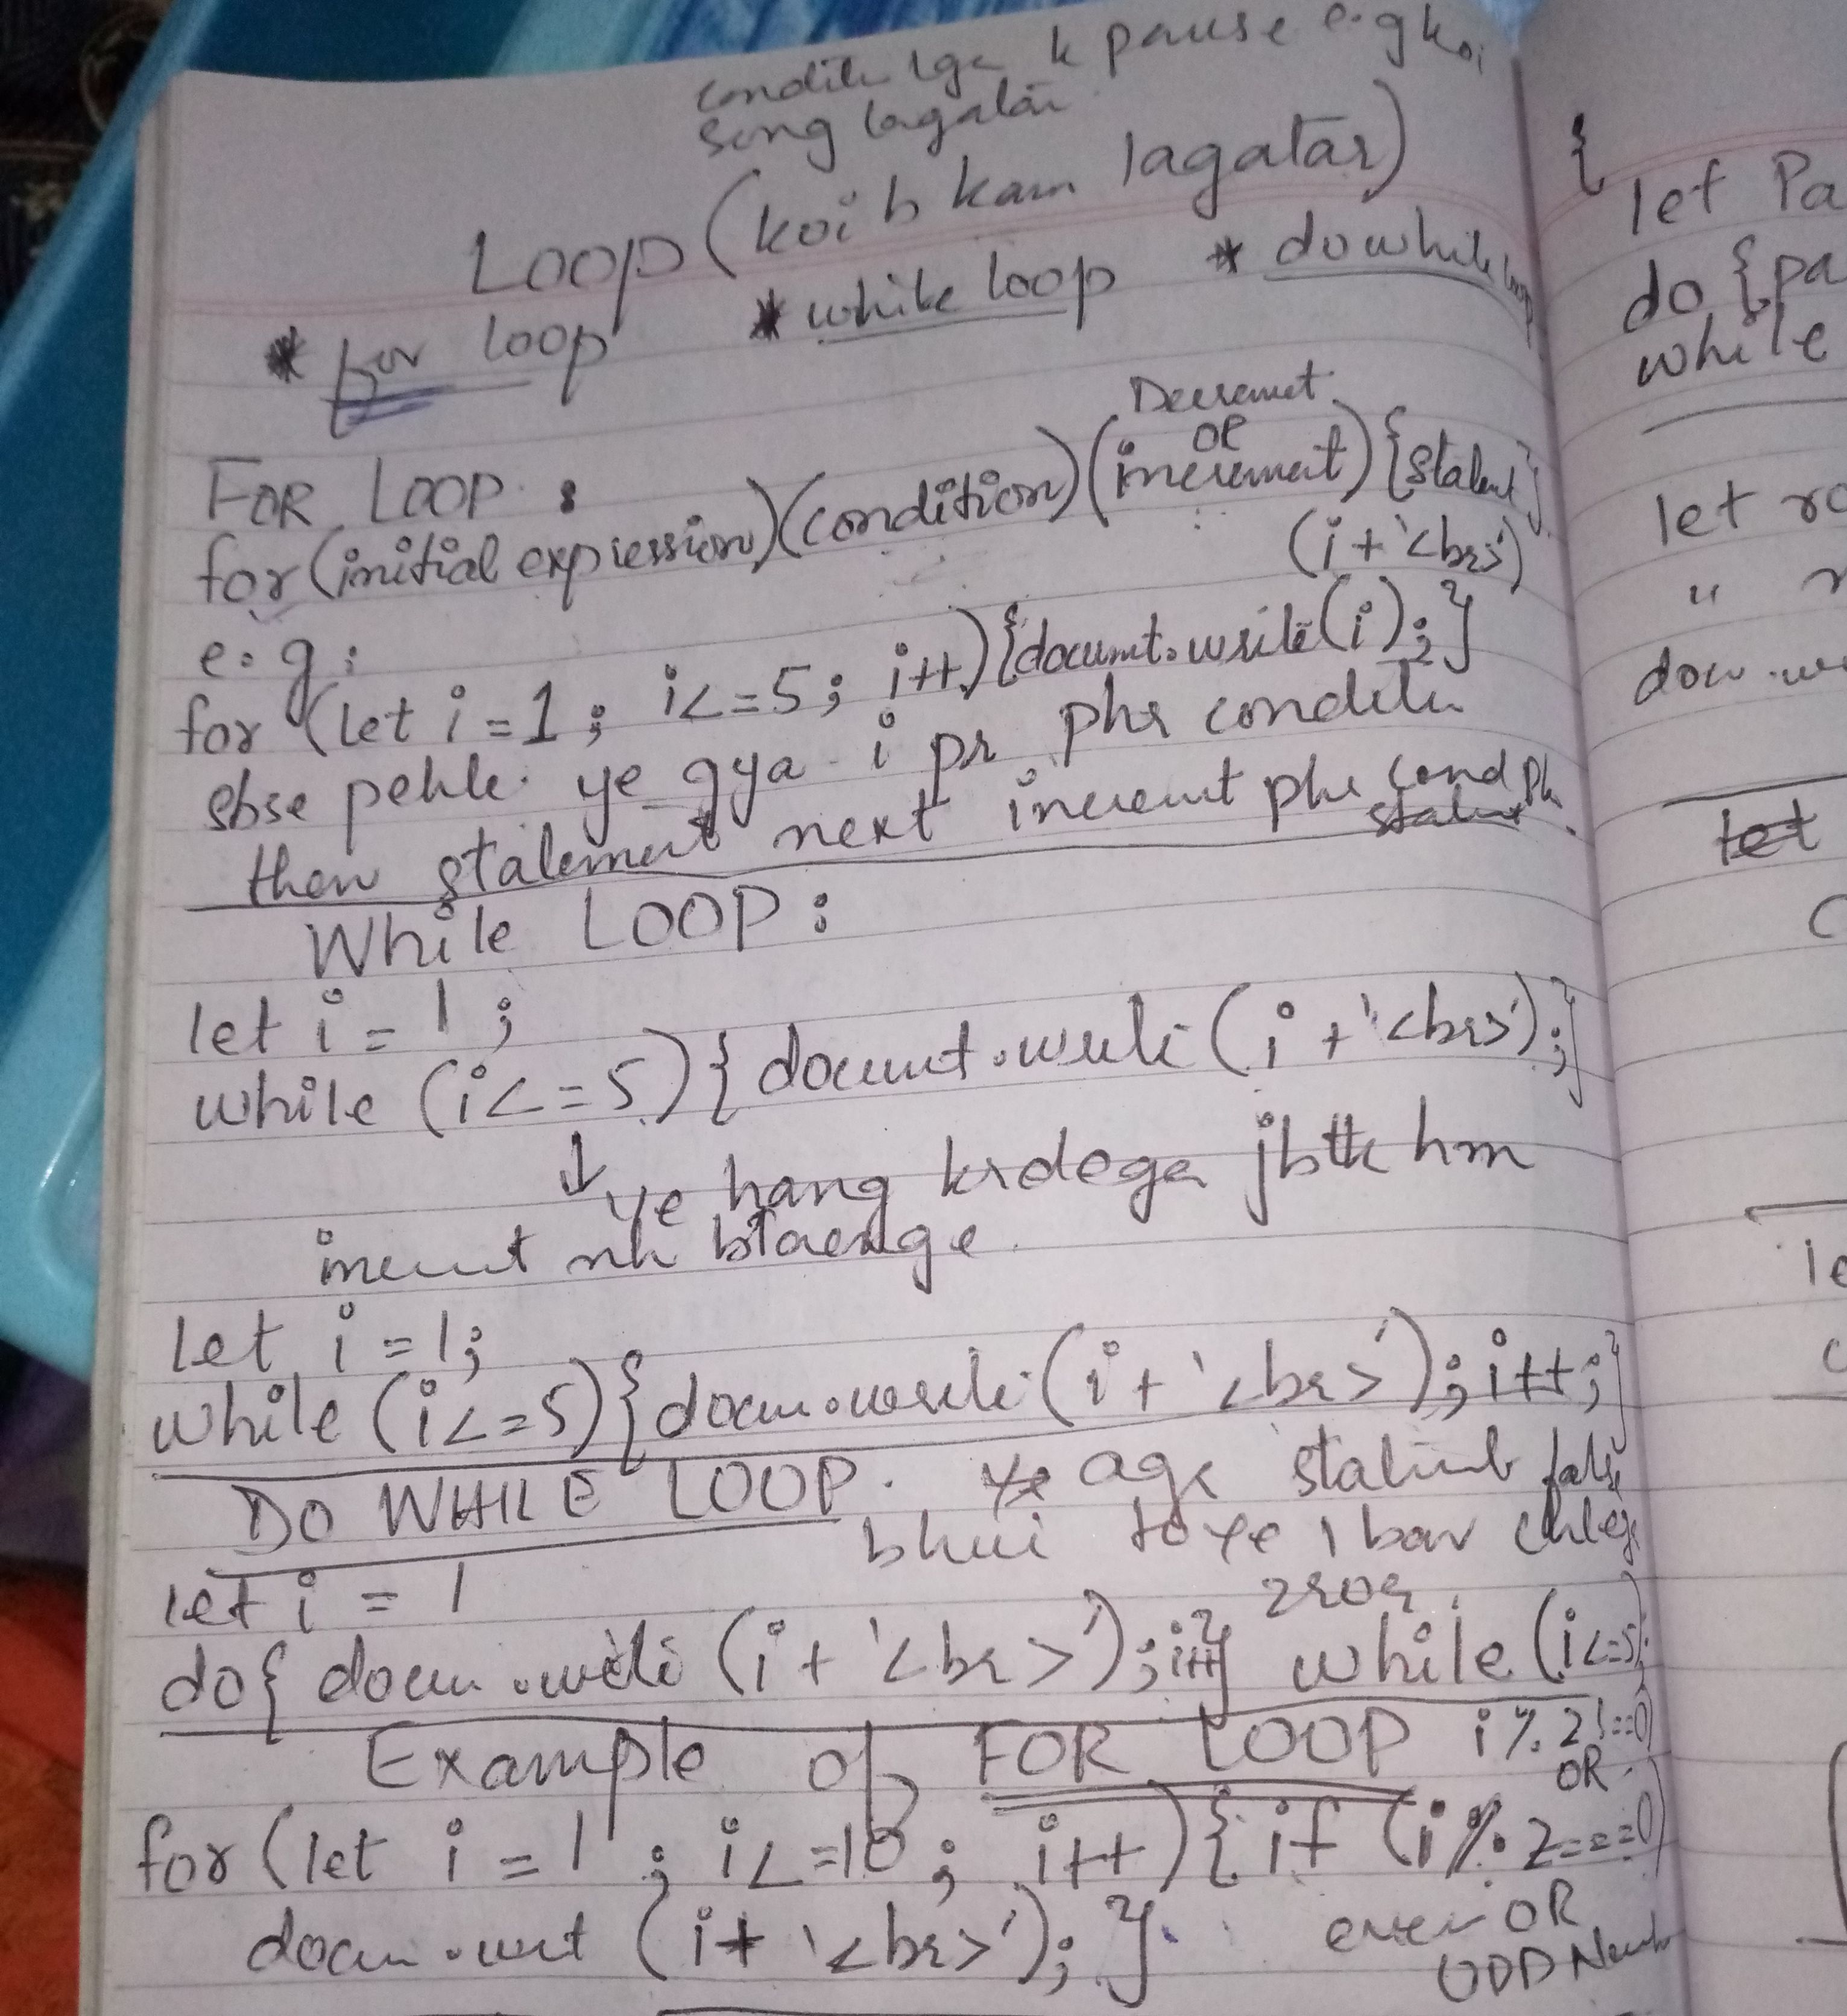 k pause e.g koi
song lagatar
LOOP (koi b kam lagatar)
* for loop * while loop * do while loop
Decremet
OR
FOR LOOP :
for (initial expression)(condition)(increment) {statemt}
(i+'<br>')
e.g:
for (let i = 1 ; i<=5 ; i++) {documt.write(i);}
sbse pehle ye gya i pr phr conditn
then statement next incremt phr cond ph
While LOOP :
let i = 1 ;
while (i<=5) { documt.write (i + '<br>');}
↓ ye hang krdega jbtk hm
incremt nh btaenge
let i = 1;
while (i<=5) {docum.write (i + '<br>'); i++;}
DO WHILE LOOP. ye agr statemt false
bhui to ye 1 bar chlega
zror
let i = 1
do { docum.write (i + '<br>'); i++} while (i<=5);
Example of FOR LOOP i % 2 !==0
OR
for (let i = 1 ; i<=10 ; i++) { if (i % 2===0)
docum.writ (i + '<br>'); } even OR
ODD Numb
{
let Pa
do {pa
while
let ro
"
docu.w
let
C
le